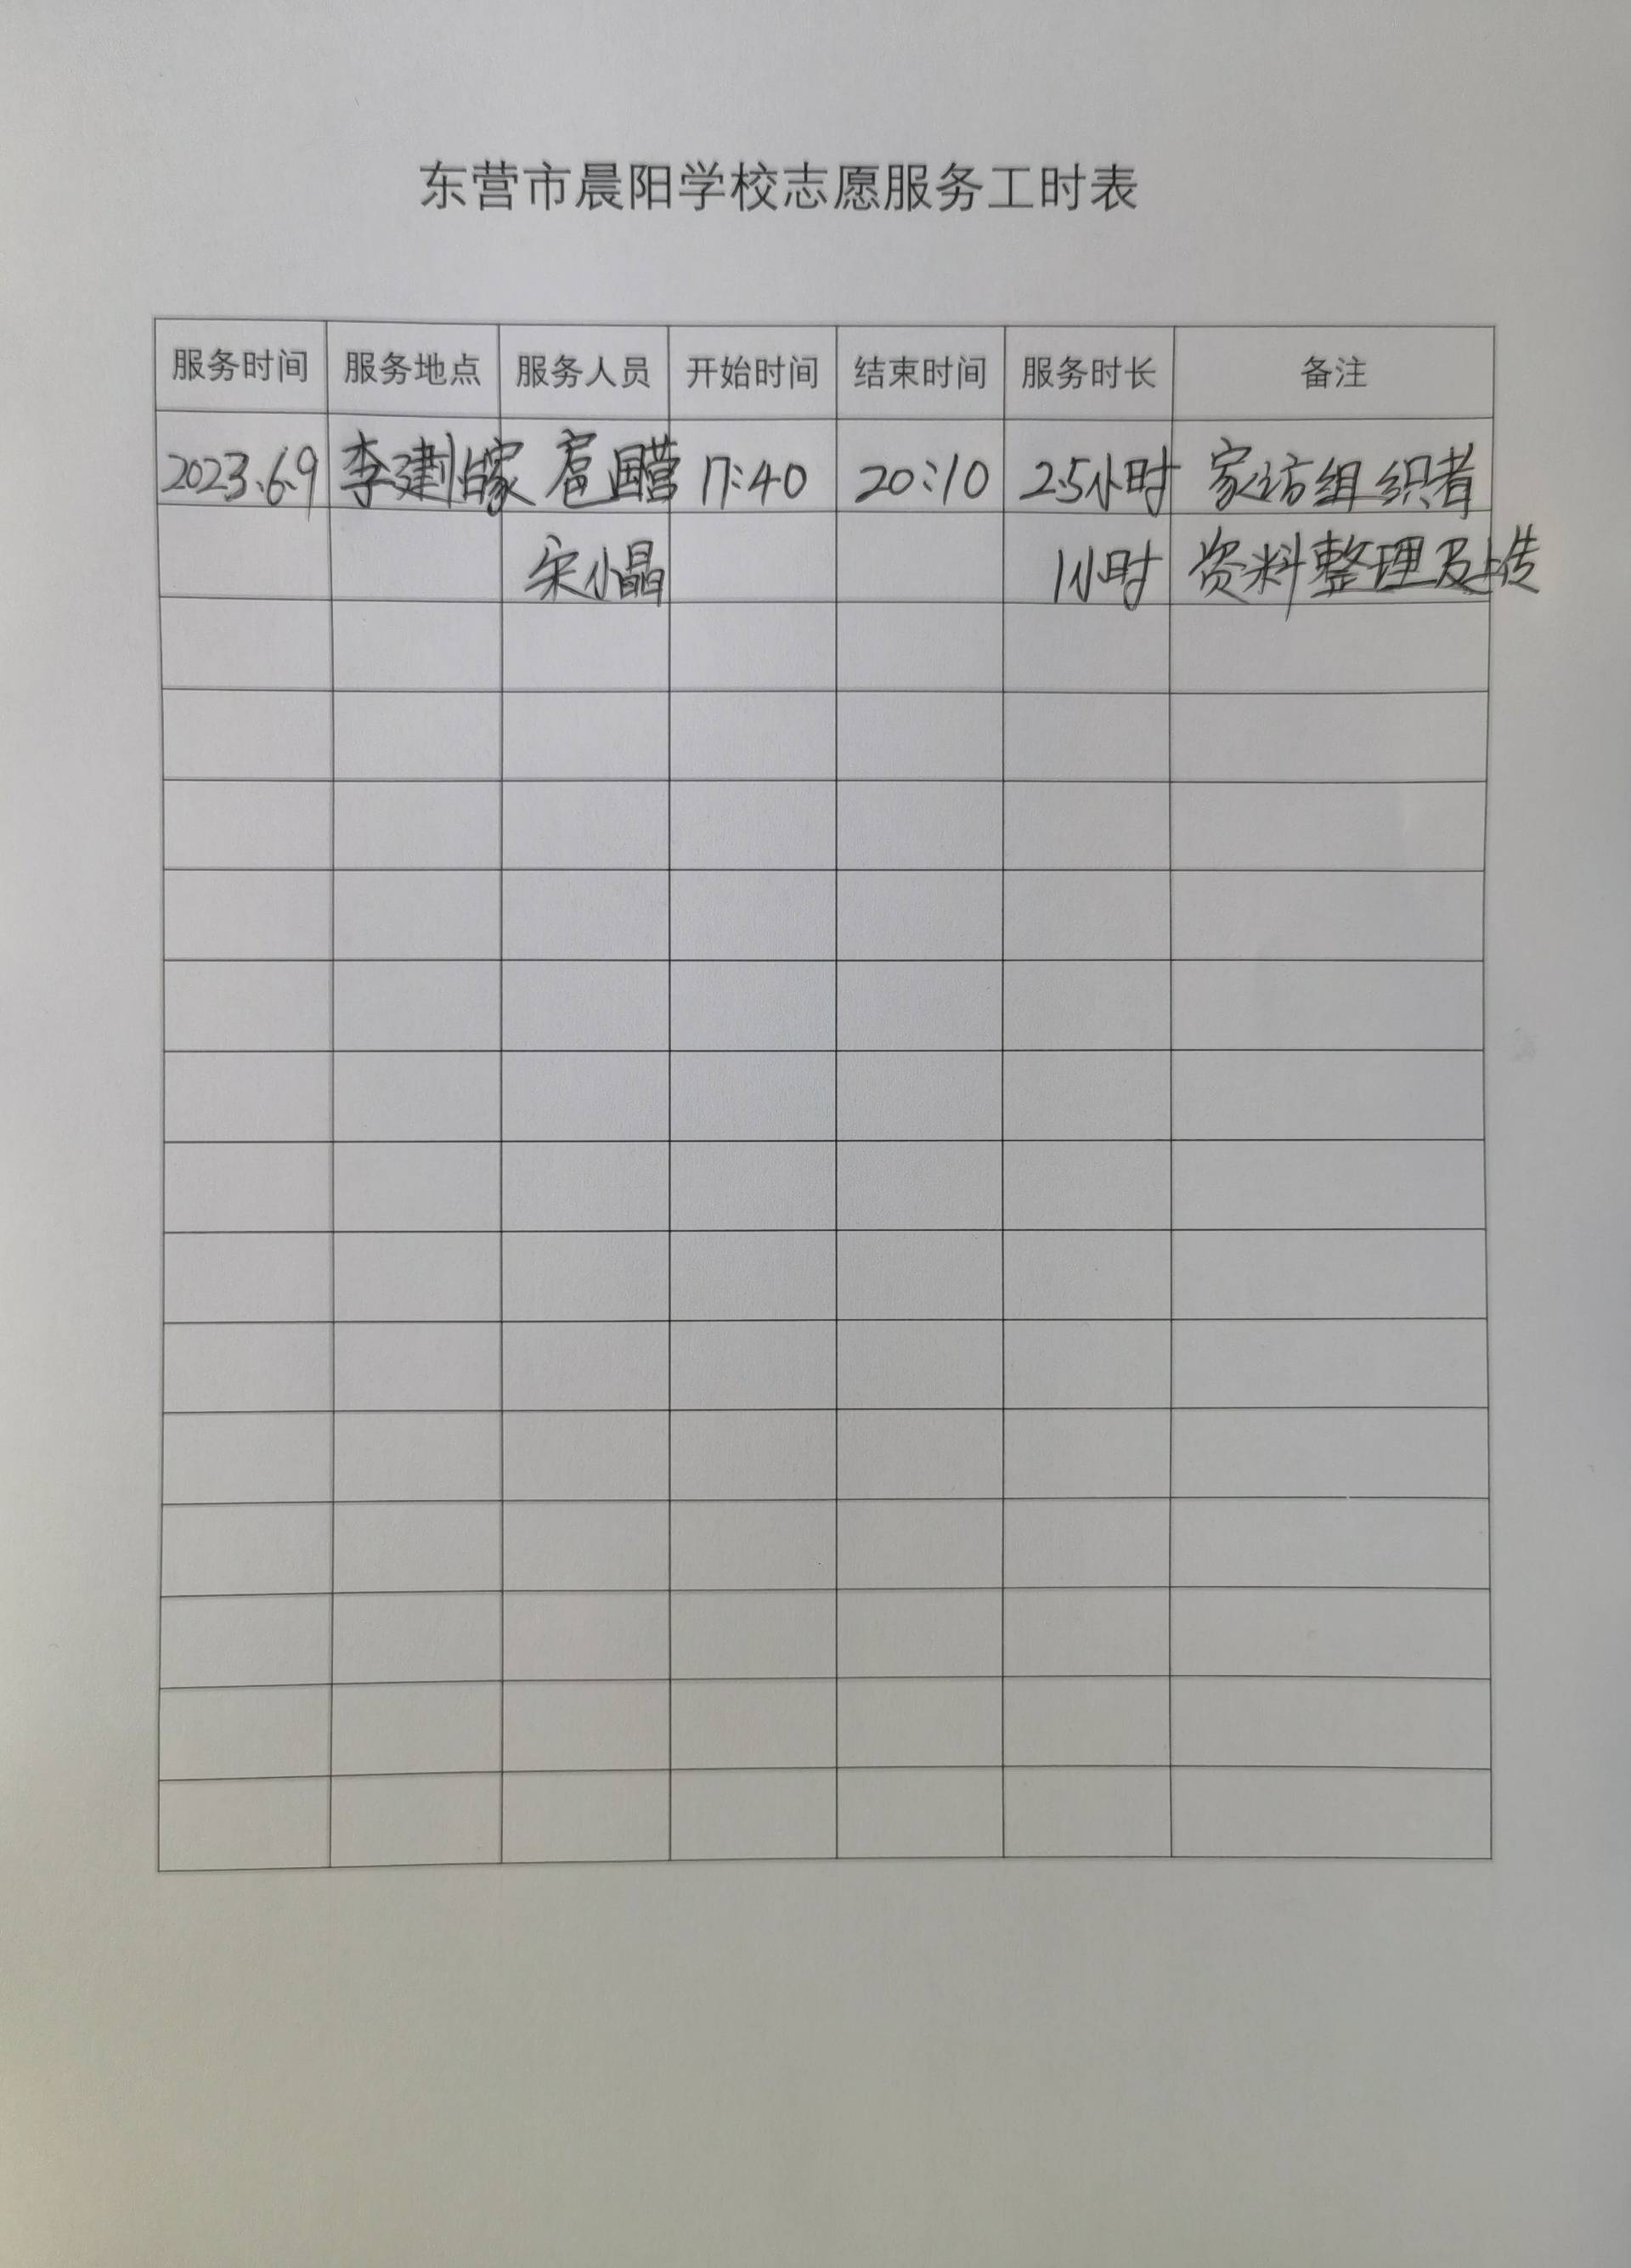 东营市晨阳学校志愿服务工时表
服务时间 服务地点 服务人员 开始时间 结束时间 服务时长 备注
2023.6.9 李建 家 国营 17:40 20:10 2.5小时 家访组织者
宋小晶 1小时 资料整理及上传